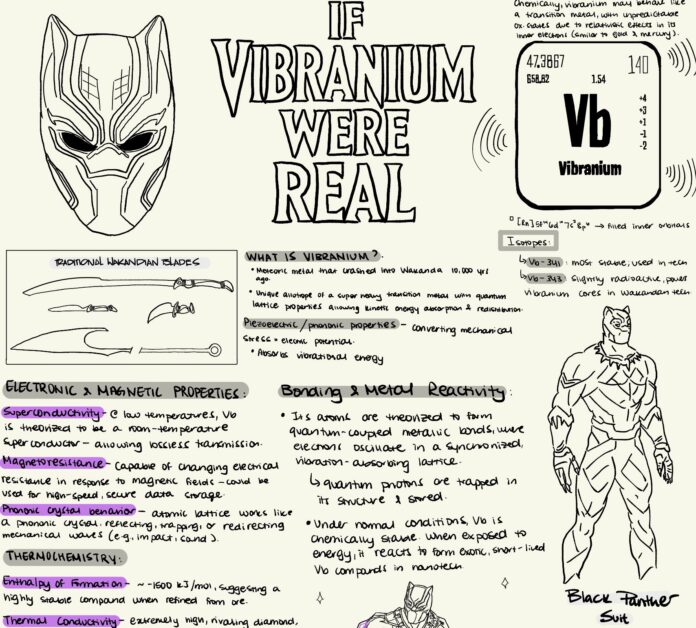 IF
VIBRANIUM
WERE
REAL
Chemically, vibranium may behave like
a transition metal, with unpredictable
ox. states due to relativistic effects in its
inner electrons (similar to gold & mercury).
47.3867
140
658.82
1.54
+4
+3
+1
-1
-2
Vb
Vibranium
→ filled inner orbitals
Isotopes:
↳ Vb-341: most stable, used in tech
↳ Vb-343 slightly radioactive, power
vibranium cores in Wakandan tech.
TRADITIONAL WAKANDIAN BLADES
WHAT IS VIBRANIUM?
• Meteoric metal that crashed into Wakanda 10,000 yrs
ago.
• Unique allotope of a super heavy transition metal with quantum
lattice properties allowing kinetic energy absorption & redistribution.
Piezoelectric/phononic properties - converting mechanical
stress = electric potential.
• Absorbs vibrational energy
ELECTRONIC & MAGNETIC PROPERTIES:
Superconductivity - @ low temperatures, Vb
is theorized to be a room-temperature
superconductor - allowing lossless transmission.
Magnetoresistance - capable of changing electrical
resistance in response to magnetic fields - could be
used for high-speed, secure data storage.
Phononic crystal behavior - atomic lattice works like
a phononic crystal, reflecting, trapping, or redirecting
mechanical waves (e.g, impact, sound).
THERMOCHEMISTRY:
Enthalpy of Formation - ~ -1500 kJ/mol, suggesting a
highly stable compound when refined from ore.
Thermal Conductivity - extremely high, rivaling diamond,
Bonding & Metal Reactivity:
• Its atoms are theorized to form
quantum-coupled metallic bonds, were
electrons oscillate in a synchronized,
vibration-absorbing lattice.
↳ quantum photons are trapped in
its structure & stored.
• Under normal conditions, Vb is
chemically stable. When exposed to
energy, it reacts to form exotic, short-lived
Vb compands in nanotech.
Black Panther
Suit